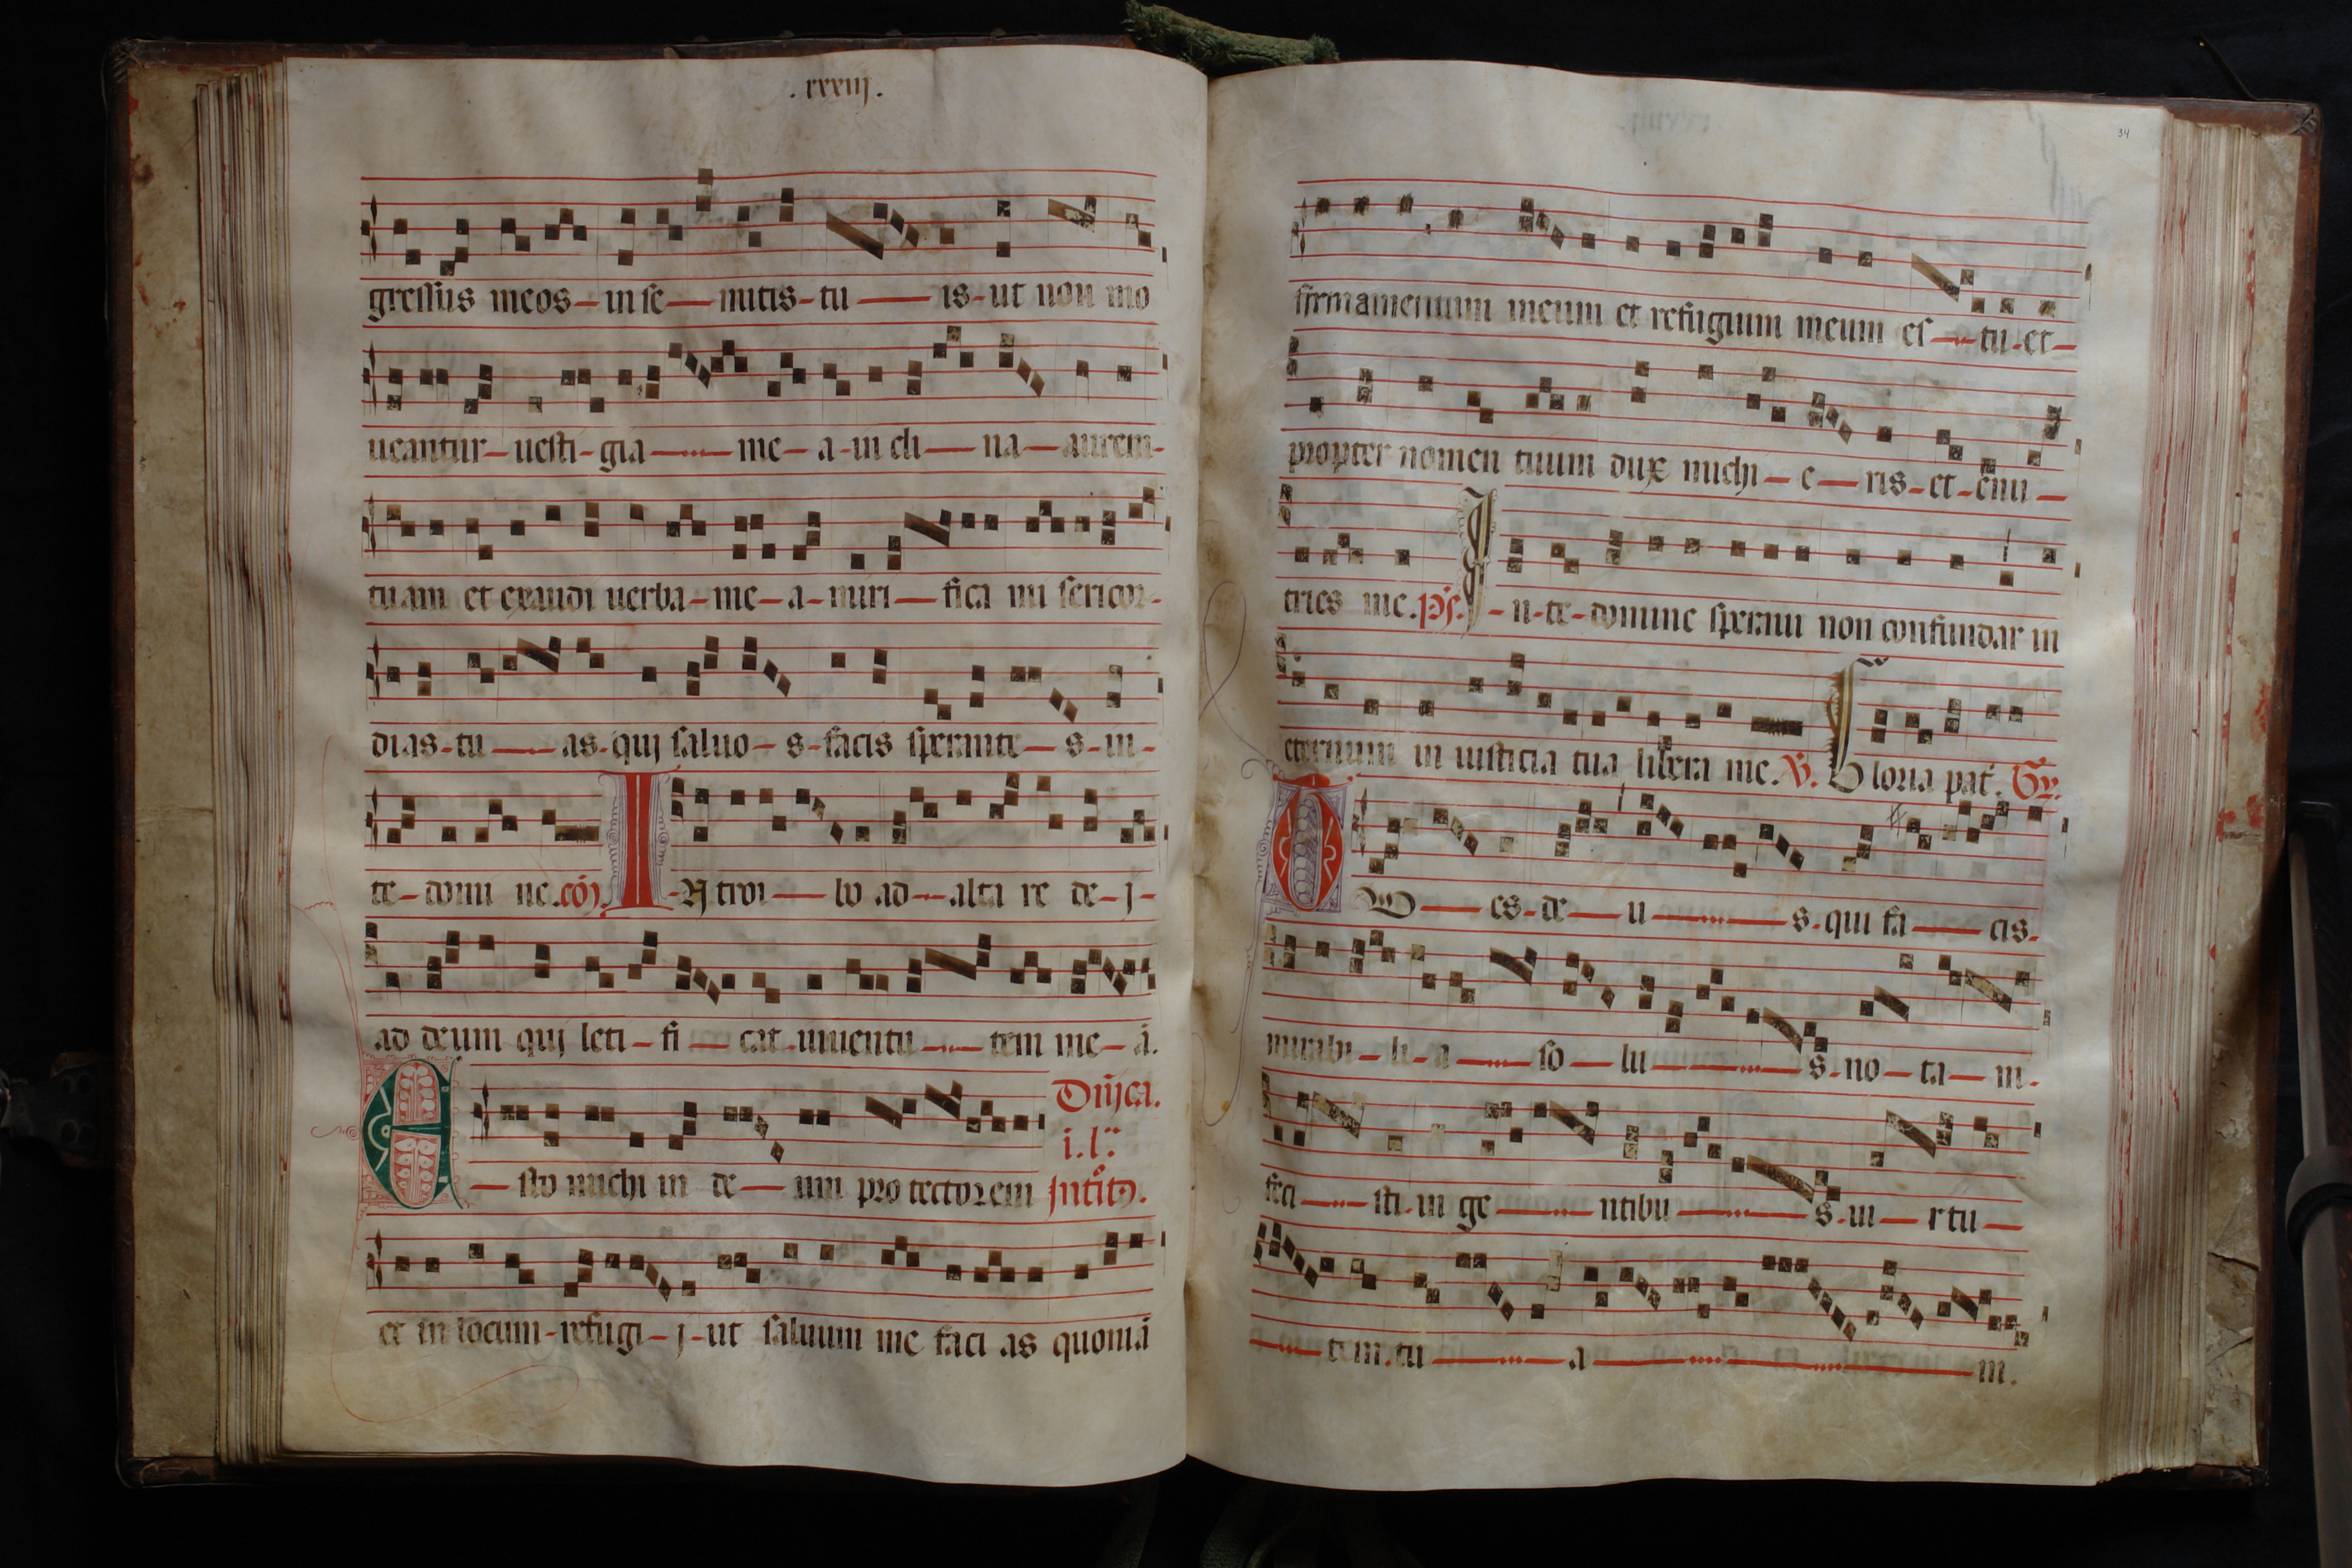 .xxxiij.
gressus meos-in se-mitis-tu-is-ut non mo
ueantur-uesti-gia-me-a-in cli-na-aurem-
tuam et exaudi uerba-me-a-miri-fica mi sericor-
dias-tu-as-quj saluo-s-facis sperante-s-in-
te-domi ne.cõ). I-Ntroi-bo ad-alta re de-j-
ad deum quj leti-fi-cat-iuuentu-tem me-ã.
Dñjca.
i.l:
E-sto michi in de-um pro tectorem jntitõ.
et in locum-refugi-j-ut saluum me faci as quoniã
34
firmamentum meum et refugium meum es-tu-et-
propter nomen tuum dux michi-e-ris-et-enu-
tries me. ps. I-n-te-domine speraui non confundar in
eternum in iusticia tua libera me. V. Gloria pat. Gr.
TV-es-de-u-s.qui fa-cis.
mirabi-li-a-so-lu-s-no-ta-m-
feci-sti-in ge-ntibu-s-ui-rtu-
-tem.tu-a-m.